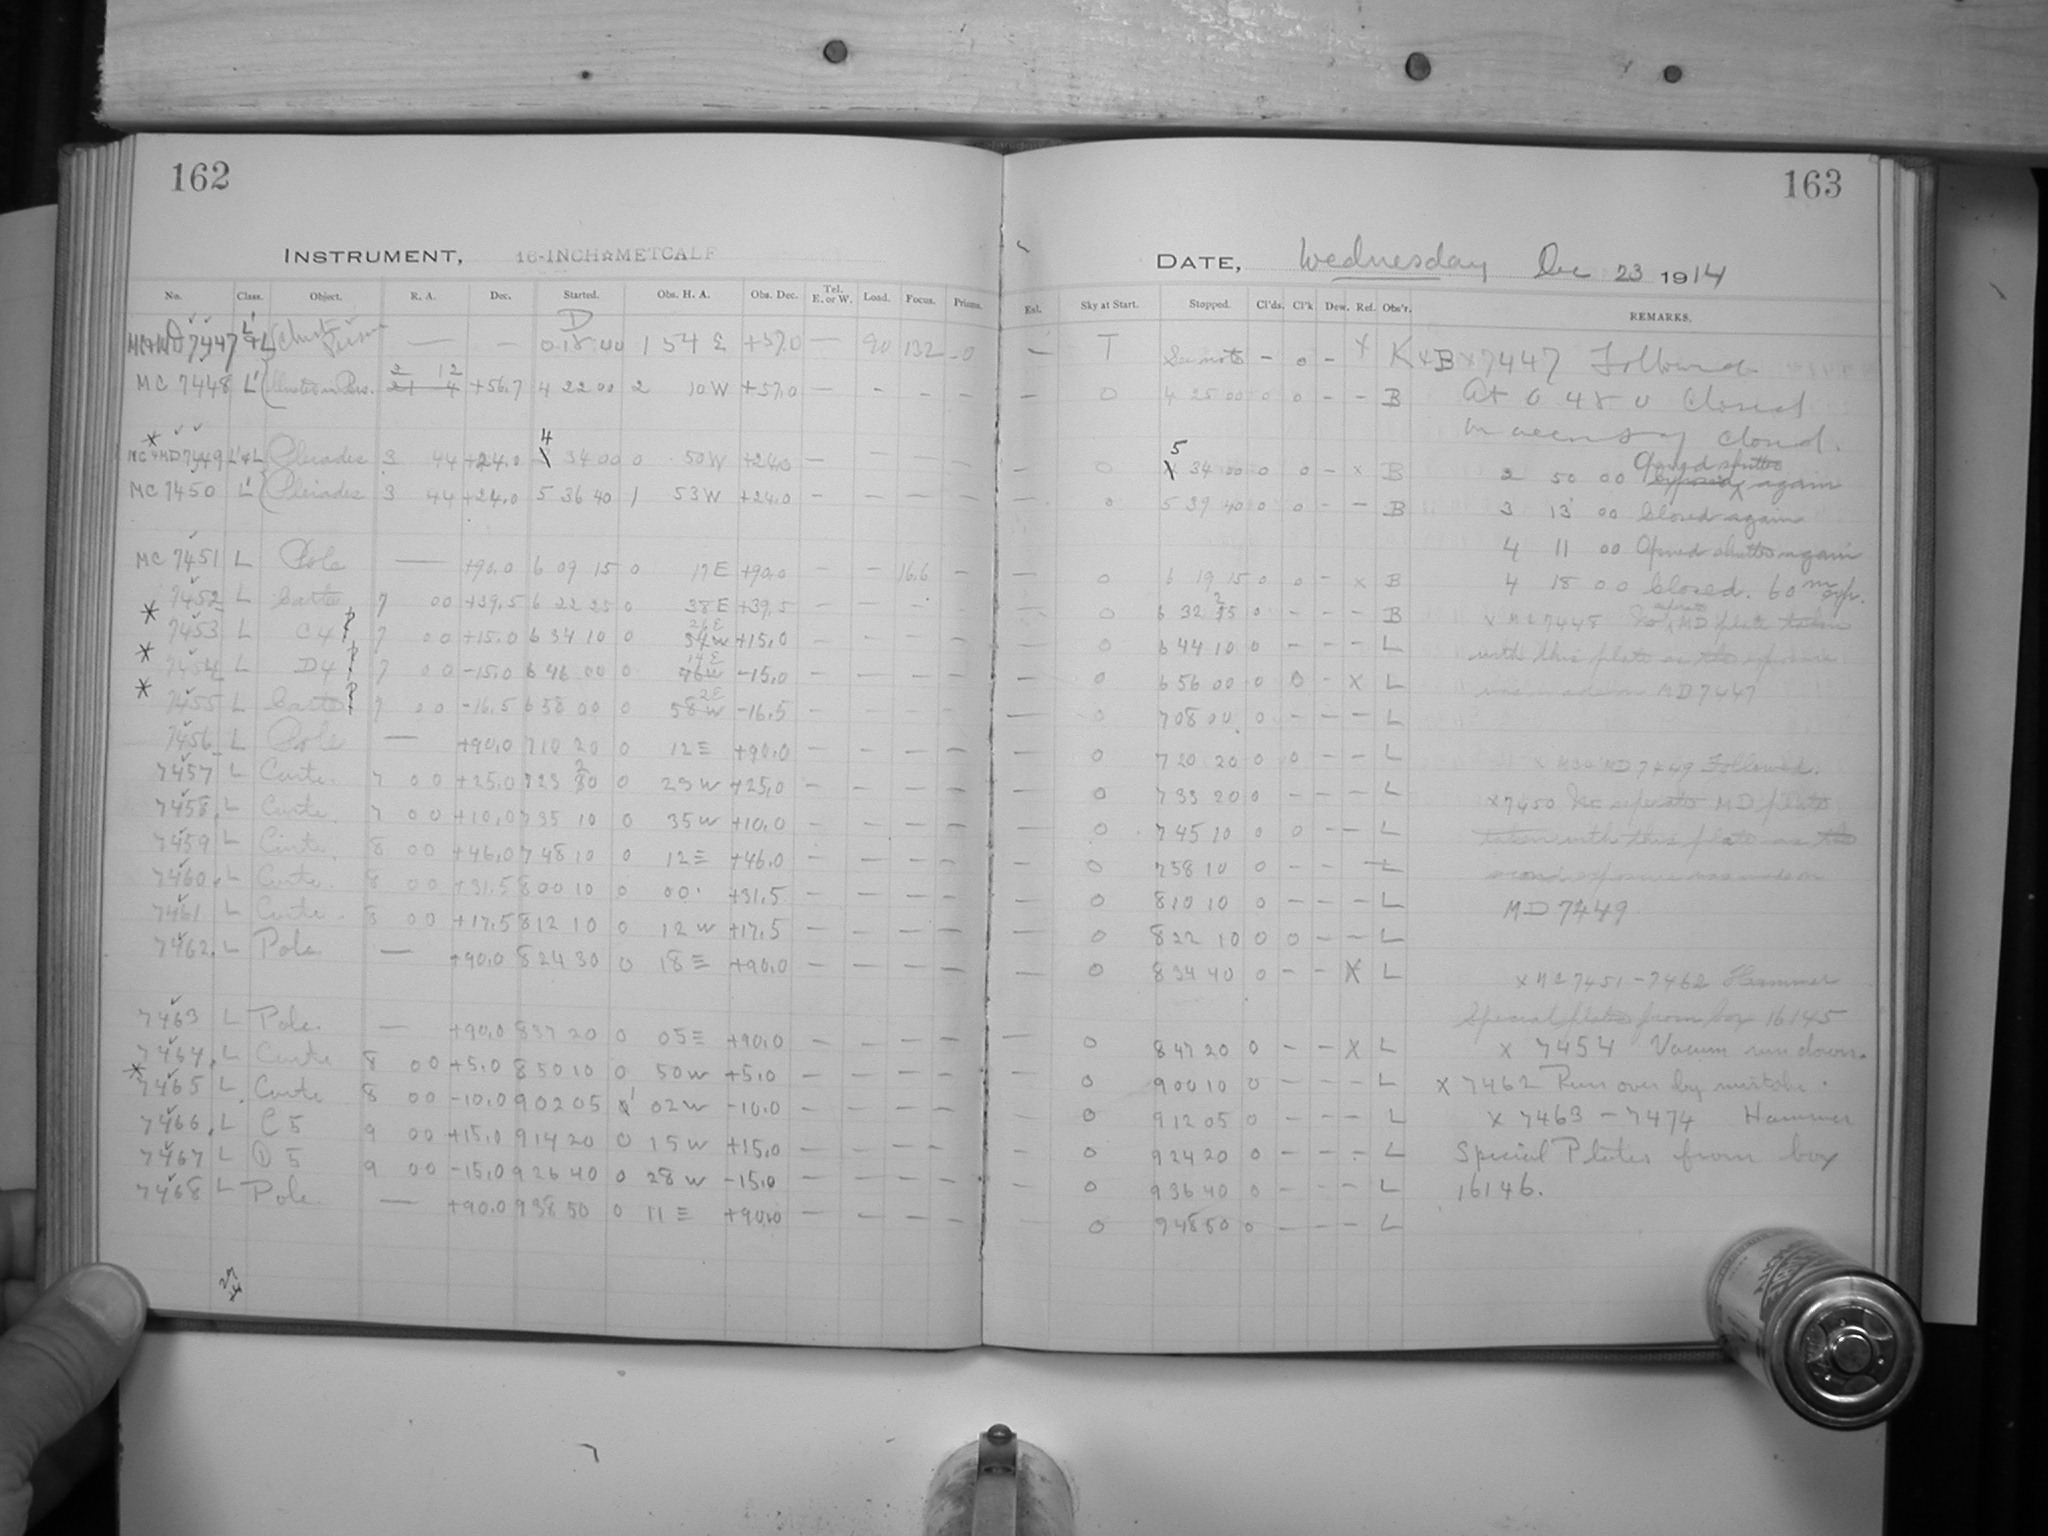 162
INSTRUMENT, 16-INCH☆METCALF
No. Class. Object. R. A. Dec. Started. Obs. H. A. Obs. Dec. Tel. E. or W. Load. Focus. Prisms.
MC+MD 7447 L'+L — — 0 18 00 1 54 E +57.0 — 90 13.2 -0
MC 7448 L' 2 12 +56.7 4 22 00 2 10 W +57.0 — - – –
MC+MD 7449 L'+L Pleiades 3 44 +24.0 4 34 00 0 50 W +24.0 — – – –
MC 7450 L' Pleiades 3 44 +24.0 5 36 40 1 53 W +24.0 – – – –
MC 7451 L Pole — +90.0 6 09 15 0 17 E +90.0 – – 16.6 –
7452 L Carte 7 00 +39.5 6 22 25 0 38 E +39.5 – – – –
7453 L C4 7 00 +15.0 6 34 10 0 26 E +15.0 – – – –
7454 L D4 7 00 -15.0 6 46 00 0 14 E -15.0 – – – –
7455 L Carte 7 00 -16.5 6 58 00 0 2 E -16.5 – – – –
7456 L Pole — +90.0 7 10 20 0 12 E +90.0 – – – –
7457 L Carte. 7 00 +25.0 7 23 20 0 23 W +25.0 – – – –
7458 L Carte. 7 00 +10.0 7 35 10 0 35 W +10.0 – – – –
7459 L Carte. 8 00 +46.0 7 48 10 0 12 E +46.0 – – – –
7460 L Carte. 8 00 +31.5 8 00 10 0 00 +31.5 – – – –
7461 L Carte. 8 00 +17.5 8 12 10 0 12 W +17.5 – – – –
7462 L Pole — +90.0 8 24 30 0 18 E +90.0 – – – –
7463 L Pole. — +90.0 8 37 20 0 05 E +90.0 – – – –
7464 L Carte 8 00 +5.0 8 50 10 0 50 W +5.0 – – – –
7465 L Carte 8 00 -10.0 9 02 05 1 02 W -10.0 – – – –
7466 L C5 9 00 +15.0 9 14 20 0 15 W +15.0 – – – –
7467 L D5 9 00 -15.0 9 26 40 0 28 W -15.0 – – – –
7468 L Pole — +90.0 9 38 50 0 11 E +90.0 – – – –
163
DATE, Wednesday Dec 23 1914
Exl. Sky at Start. Stopped. Cl'ds. Cl'k Dew. Ref. Obs'r. REMARKS.
— T See note – 0 – x K+B x 7447 Followed
— 0 4 25 00 0 0 – – B At 0 48 0 Closed
on account of cloud.
0 5 34 00 0 0 – x B 2 50 00 Opened shutter again
0 5 39 40 0 0 – – B 3 13 00 Closed again
4 11 00 Opened shutter again
— 0 6 19 15 0 0 – x B 4 18 00 Closed. 60 m exp.
0 6 32 25 0 – – – B x MC 7448 No separate MD plate taken
0 6 44 10 0 – – – L with this plate as the exposure
0 6 56 00 0 0 – x L was made on MD 7447
— 0 7 08 00 0 – – – L
0 7 20 20 0 0 – – L x MC+MD 7449 Followed.
0 7 33 20 0 – – – L x 7450 No separate MD plate
0 7 45 10 0 0 – – L taken with this plate as the
0 7 58 10 0 – – – L second exposure was made on
0 8 10 10 0 – – – L MD 7449
0 8 22 10 0 0 – – L
— 0 8 34 40 0 – – x L x MC 7451-7462 Hammer
Special plates from box 16145
— 0 8 47 20 0 – – x L x 7454 Vacum run down.
0 9 00 10 0 – – – L x 7462 Run over by mistake.
0 9 12 05 0 – – – L x 7463-7474 Hammer
0 9 24 20 0 – – – L Special Plates from box
0 9 36 40 0 – – – L 16146.
0 9 48 50 0 – – – L